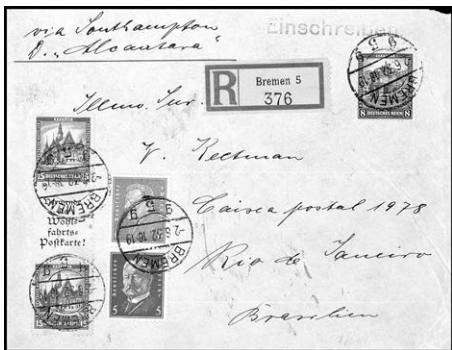 via Southampton
D. „Alcantara"
Einschreiben
R
Bremen 5
376
BREMEN
5
8 DEUTSCHES REICH 8
Illmo. Snr.
W. Rectman
Caixa postal 1978
Rio de Janeiro
Brasilien
15 DEUTSCHES REICH 15
BREMEN
Verwende
Wohl-
fahrts-
Postkarte!
BREMEN
-2.6.32.18-19
5
5 5